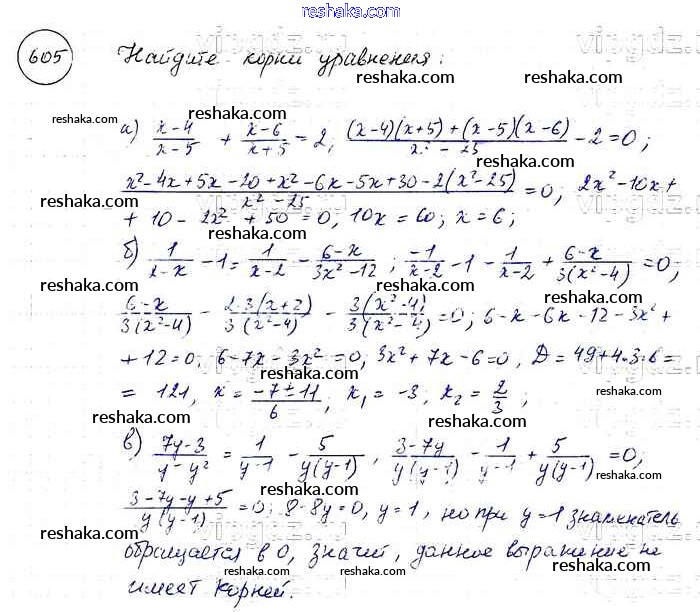 reshaka.com
605 Найдите корни уравнения:
reshaka.com reshaka.com
reshaka.com reshaka.com
а) (x-4)/(x-5) + (x-6)/(x+5) = 2, ((x-4)(x+5)+(x-5)(x-6))/(x²-25) - 2 = 0;
reshaka.com
(x²-4x+5x-20+x²-6x-5x+30-2(x²-25))/(x²-25) = 0; 2x²-10x+
+ 10 - 2x² + 50 = 0, 10x = 60; x = 6;
reshaka.com reshaka.com
б) 1/(2-x) - 1 = 1/(x-2) - (6-x)/(3x²-12); -1/(x-2) - 1 - 1/(x-2) + (6-x)/(3(x²-4)) = 0;
reshaka.com
(6-x)/(3(x²-4)) - (2·3(x+2))/(3(x²-4)) - (3(x²-4))/(3(x²-4)) = 0; 6-x-6x-12-3x²+
reshaka.com reshaka.com
+ 12 = 0; 6-7x-3x² = 0, 3x²+7x-6=0, D = 49+4·3·6 =
= 121, x = (-7±11)/6, x₁ = -3; x₂ = 2/3;
reshaka.com reshaka.com
в) (7y-3)/(y-y²) = 1/(y-1) - 5/(y(y-1)), (3-7y)/(y(y-1)) - 1/(y-1) + 5/(y(y-1)) = 0;
reshaka.com
reshaka.com
(3-7y-y+5)/(y(y-1)) = 0; 8-8y=0, y=1, но при y=1 знаменатель
reshaka.com reshaka.com
обращается в 0, значит, данное выражение не
reshaka.com reshaka.com
имеет корней.